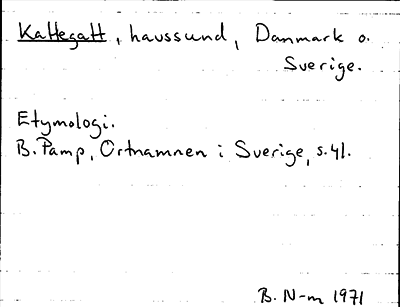 Kattegatt, havssund, Danmark o.
Sverige.
Etymologi.
B. Pamp, Ortnamnen i Sverige, s. 41.
B. N-m 1971